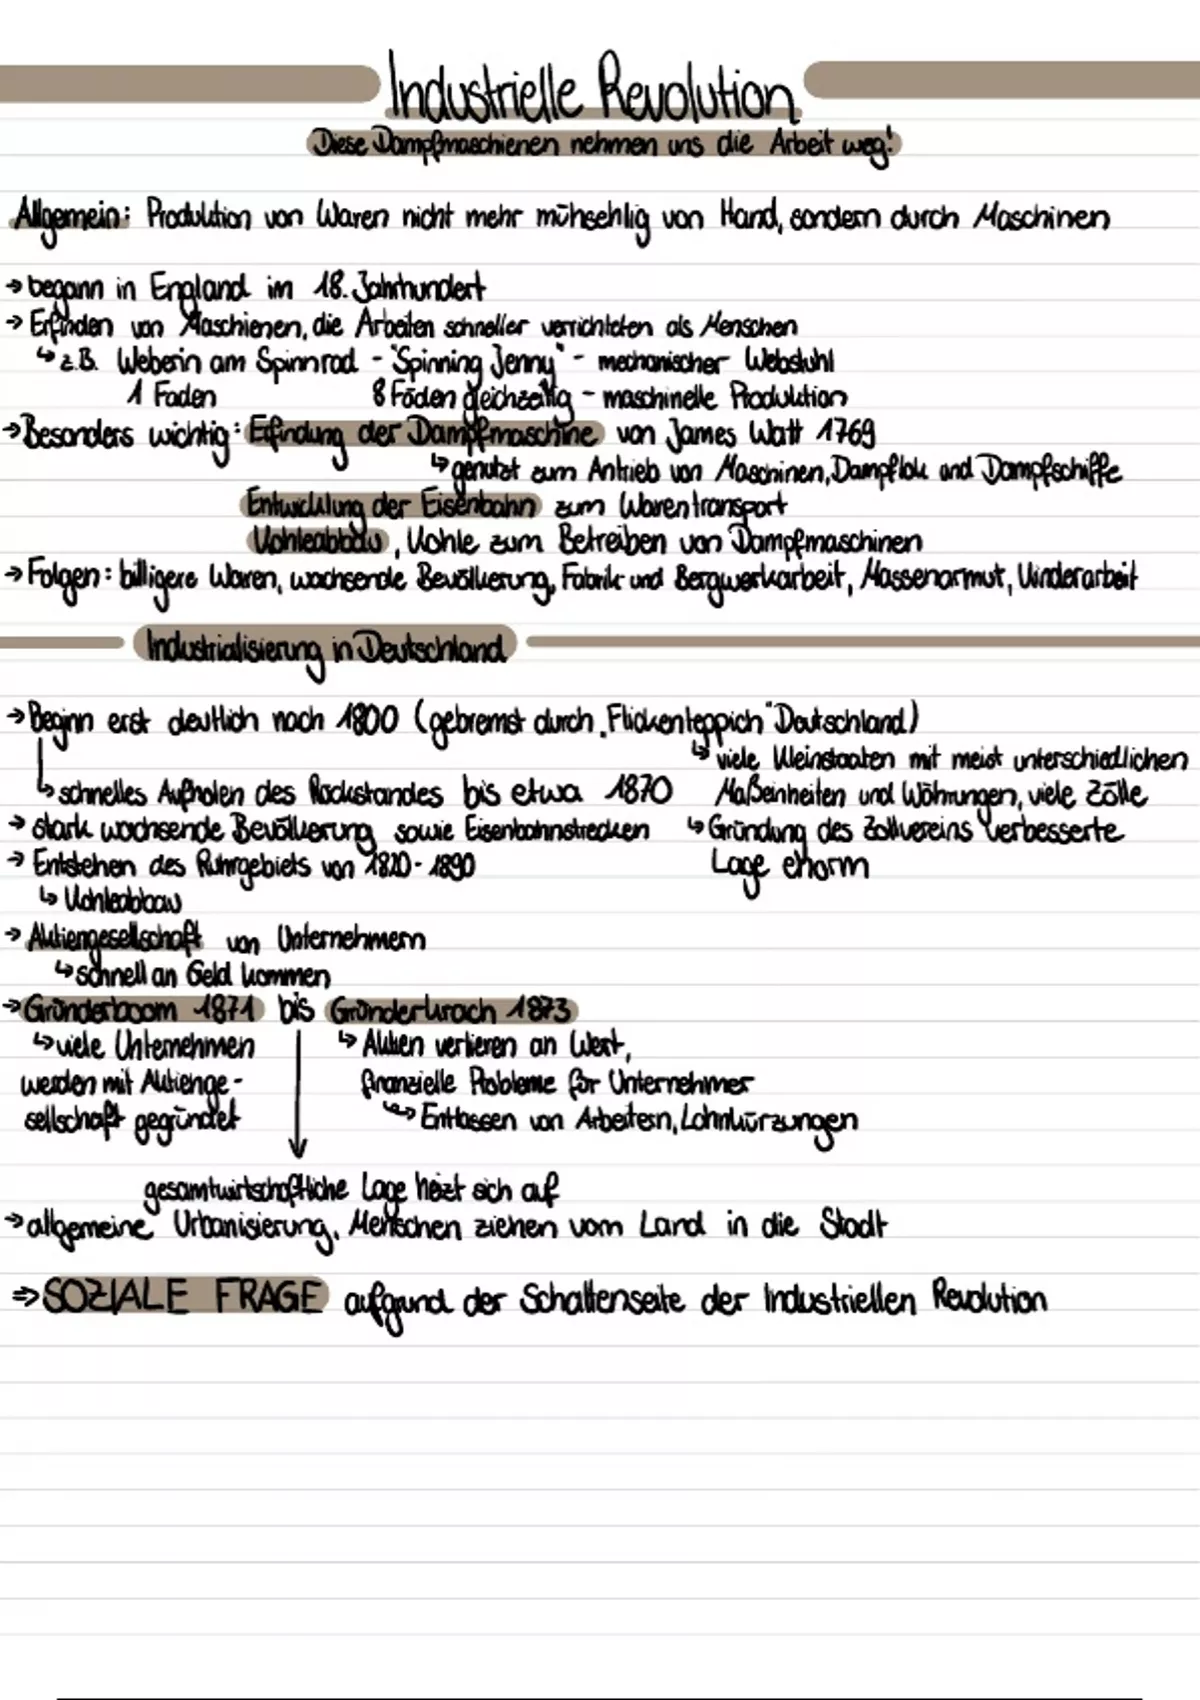 Industrielle Revolution
Diese Dampfmaschienen nehmen uns die Arbeit weg!
Allgemein: Produktion von Waren nicht mehr mühsehlig von Hand, sondern durch Maschinen
→ begann in England im 18. Jahrhundert
→ Erfinden von Maschienen, die Arbeiten schneller verrichteten als Menschen
↳ z.B. Weberin am Spinnrad - "Spinning Jenny" - mechanischer Webstuhl
1 Faden 8 Fäden gleichzeitig - maschinelle Produktion
→ Besonders wichtig: Erfindung der Dampfmaschine von James Watt 1769
↳ genutzt zum Antrieb von Maschinen, Dampflok und Dampfschiffe
Entwicklung der Eisenbahn zum Warentransport
Kohleabbau, Kohle zum Betreiben von Dampfmaschinen
→ Folgen: billigere Waren, wachsende Bevölkerung, Fabrik und Bergwerkarbeit, Massenarmut, Kinderarbeit
Industrialisierung in Deutschland
→ Beginn erst deutlich nach 1800 (gebremst durch „Flickenteppich" Deutschland)
↳ viele Kleinstaaten mit meist unterschiedlichen
↳ schnelles Aufholen des Rückstandes bis etwa 1870 Maßeinheiten und Währungen, viele Zölle
→ stark wachsende Bevölkerung sowie Eisenbahnstrecken ↳ Gründung des Zollvereins verbesserte
→ Entstehen des Ruhrgebiets von 1820 - 1890 Lage enorm
↳ Kohleabbau
→ Aktiengesellschaft von Unternehmern
↳ schnell an Geld kommen
→ Gründerboom 1871 bis Gründerkrach 1873
↳ viele Unternehmen ↳ Aktien verlieren an Wert,
werden mit Aktienge- finanzielle Probleme für Unternehmer
sellschaft gegründet ↳ Entlassen von Arbeitern, Lohnkürzungen
gesamtwirtschaftliche Lage heizt sich auf
→ allgemeine Urbanisierung, Menschen ziehen vom Land in die Stadt
⇒ SOZIALE FRAGE aufgrund der Schattenseite der Industriellen Revolution